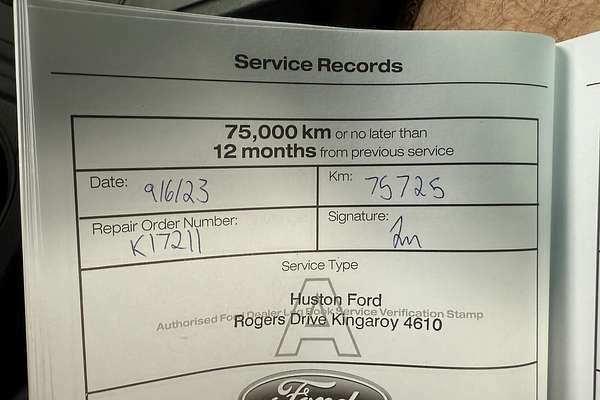 Service Records
75,000 km or no later than
12 months from previous service
Date: 9/6/23 Km: 75725
Repair Order Number: K17211 Signature:
Service Type
A
Huston Ford
Authorised Ford Dealer Log Book Service Verification Stamp
Rogers Drive Kingaroy 4610
Ford